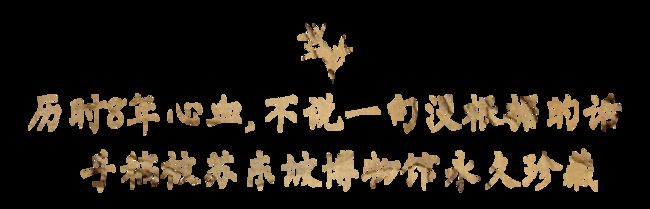 历时8年心血,不说一句没根据的话
手稿被苏东坡博物馆永久珍藏